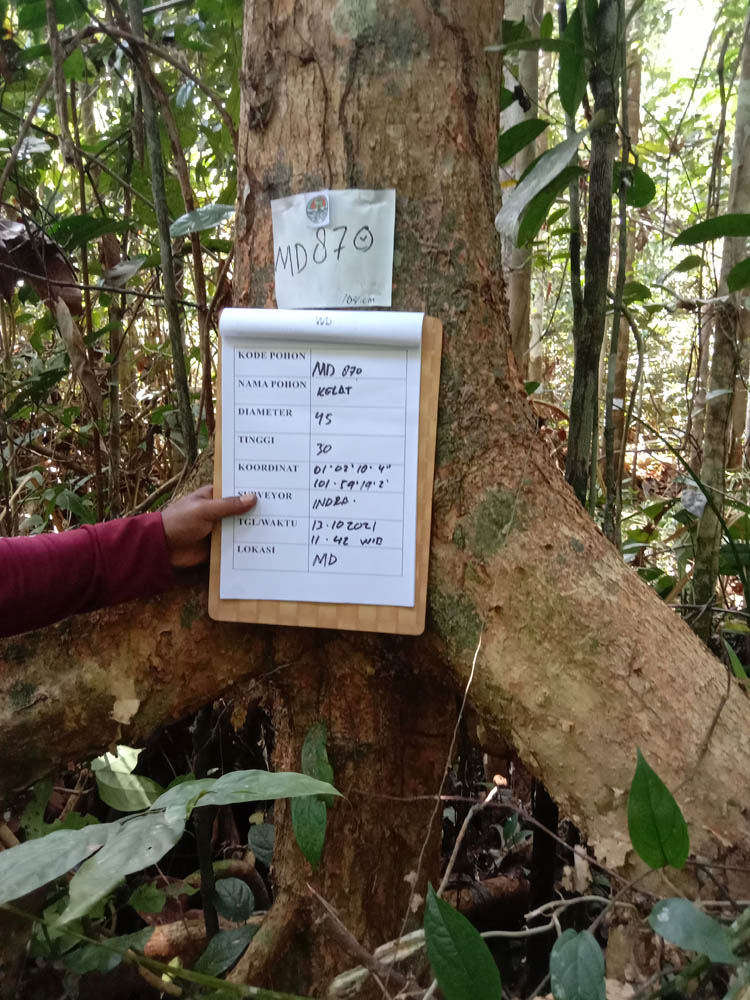 MD870
108 cm
WD
KODE POHON MD 870
NAMA POHON KELAT
DIAMETER 45
TINGGI 30
KOORDINAT 01°02'10.4"
101°59'19.2'
SURVEYOR INDRA.
TGL/WAKTU 13.10 2021
11.42 WIB
LOKASI MD